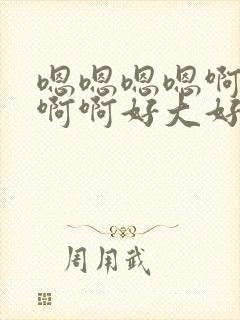 嗯嗯嗯嗯啊
啊啊好大好
周用武